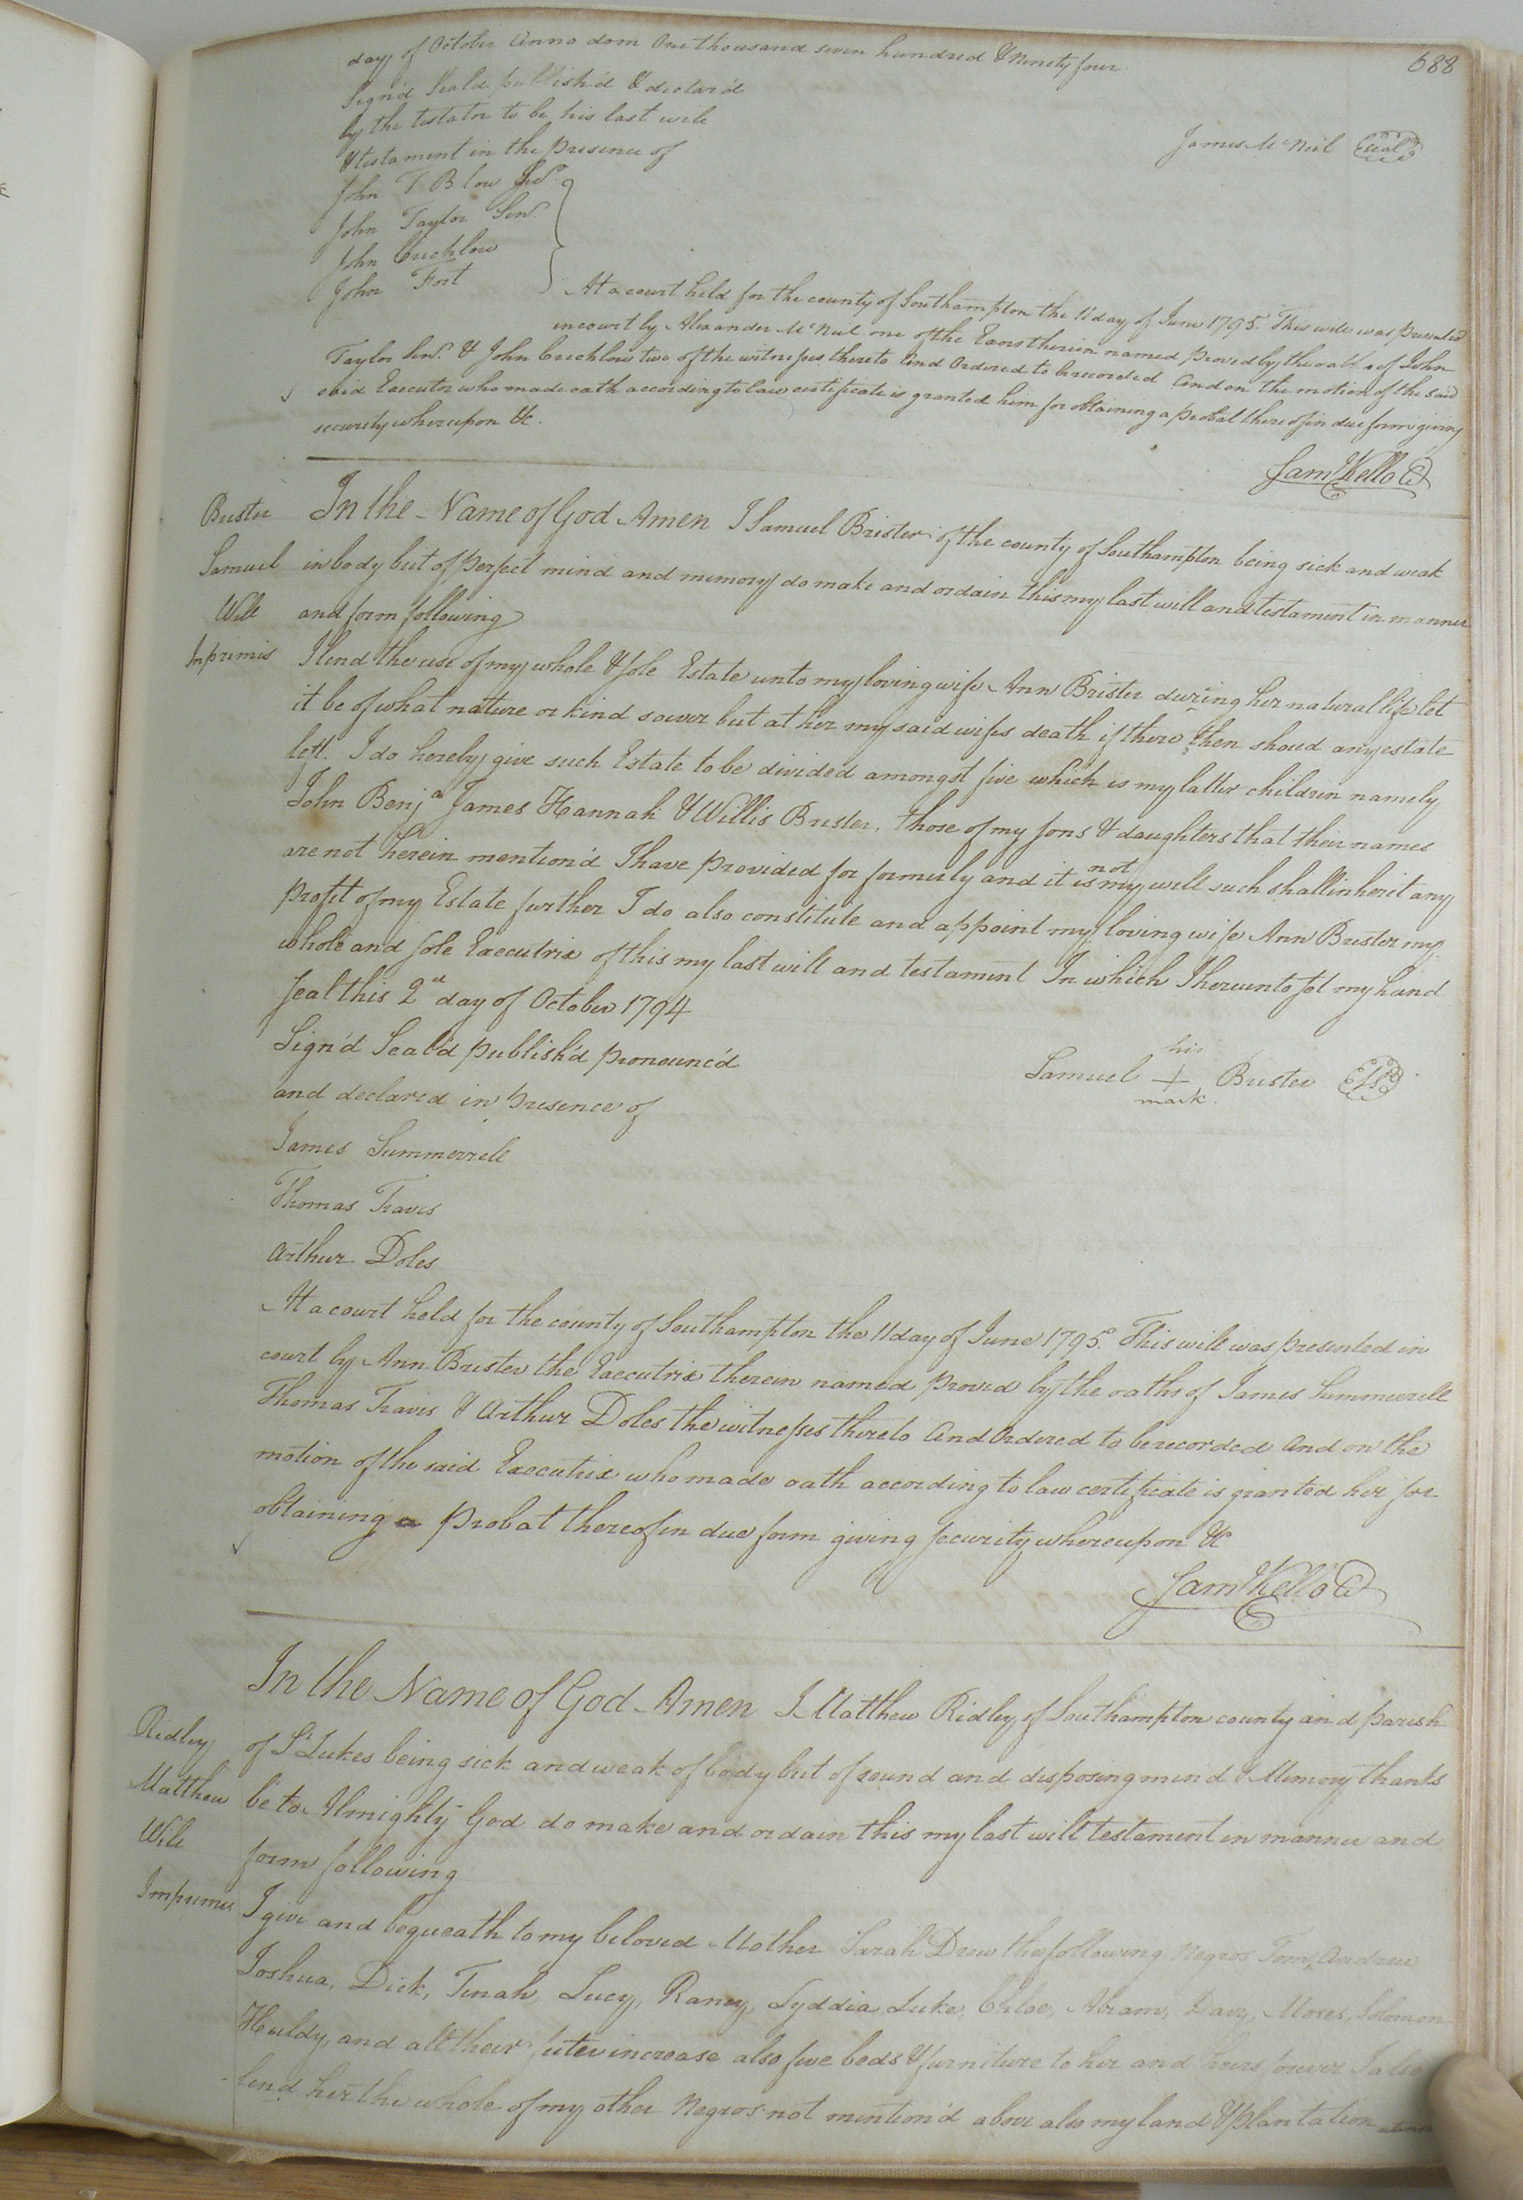 688
day of October Anno dom One thousand seven hundred & Ninety four
Sign'd Seal'd publish'd & declar'd
by the testator to be his last will
& testament in the presence of
James McNeil Seal
John T Blow Jr.
John Taylor Senr.
John Crichlow
John Fort
At a court held for the county of Southampton the 11 day of June 1795. This will was presented
in court by Alexander McNeil one of the Exors therein named proved by the oaths of John
Taylor Senr. & John Crichlow two of the witnesses thereto And Ordered to be recorded And on the motion of the said
said Executor who made oath according to law certificate is granted him for obtaining a probat thereof in due form giving
security whereupon &c.
Saml Kello Ct
Brister In the Name of God Amen I Samuel Brister of the county of Southampton being sick and weak
Samuel in body but of perfect mind and memory do make and ordain this my last will and testament in manner
Will and form following
Inprimis I lend the use of my whole & sole Estate unto my loving wife Ann Brister during her natural life let
it be of what nature or kind soever but at her my said wifes death if there then shoud any estate
left. I do hereby give such Estate to be divided amongst five which is my latter children namely
John Benja James Hannah & Willis Brister. those of my sons & daughters that their names
are not herein mention'd I have provided for formerly and it is not my will such shall inherit any
profit of my Estate further I do also constitute and appoint my loving wife Ann Brister my
whole and sole Executrix of this my last will and testament In which I hereunto set my hand
Seal this 2d day of October 1794
Sign'd Seal'd publish'd pronounc'd
and declared in presence of
Samuel his + mark Brister LS
James Summerrell
Thomas Travis
Arthur Doles
At a court held for the county of Southampton the 11 day of June 1795. This will was presented in
court by Ann Brister the Executrix therein named proved by the oaths of James Summerrell
Thomas Travis & Arthur Doles the witnesses thereto And Ordered to be recorded And on the
motion of the said Executrix who made oath according to law certificate is granted her for
obtaining a probat thereof in due form giving security whereupon &c
Saml Kello Ct
In the Name of God Amen I Matthew Ridley of Southampton county and parish
Ridley of St Lukes being sick and weak of body but of sound and disposing mind & Memory thanks
Matthew be to Almighty God do make and ordain this my last will testament in manner and
Will form following
Imprimis I give and bequeath to my beloved Mother Sarah Drew the following Negros Tom, Andrew
Joshua, Dick, Tinah, Lucy, Raney, Lyddia, Luke, Chloe, Abram, Davy, Moses, Solomon
Huldy, and all their futer increase also five beds & furniture to her and heirs forever I also
lend her the whole of my other Negros not mention'd above also my land & plantation